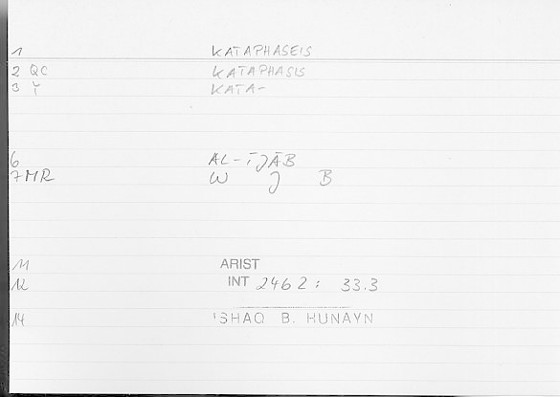 1 KATAPHASEIS
2 QC KATAPHASIS
3 Ỹ KATA-
6 AL-ĪJĀB
7 MR W J B
11 ARIST
12 INT 2462: 33.3
14 ʾSHAQ B. HUNAYN